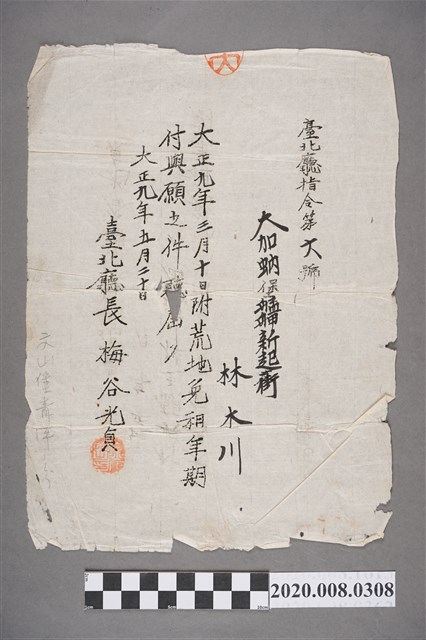 臺北廳指令第六號
大加蚋保艋舺新起街
林木川
大正九年三月十日附荒地免租年期
付與願之件聽届ク
大正九年五月二十日
臺北廳長梅谷光貞
2020.008.0308